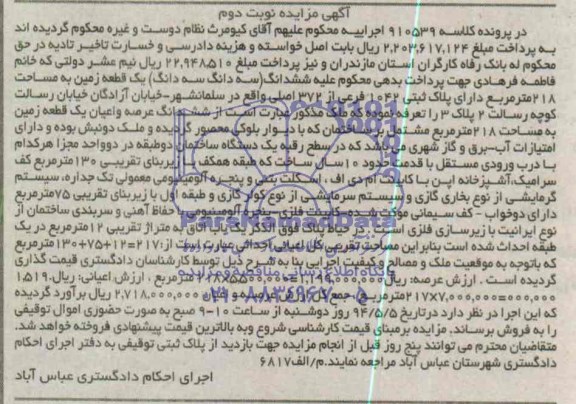 آگهی مزایده نوبت دوم
در پرونده کلاسه ۹۱۰۵۳۹ اجراییه محکوم علیهم آقای کیومرث نظام دوست و غیره محکوم گردیده اند
به پرداخت مبلغ ۲,۲۰۳,۶۱۷,۱۲۴ ریال بابت اصل خواسته و هزینه دادرسی و خسارت تاخیر تادیه در حق
محکوم له بانک رفاه کارگران استان مازندران و نیز پرداخت مبلغ ۲۲,۹۴۸,۵۱۰ ریال نیم عشر دولتی که خانم
فاطمه فرهادی جهت پرداخت بدهی محکوم علیه ششدانگ(سه دانگ سه دانگ) یک قطعه زمین به مساحت
۲۱۸مترمربع دارای پلاک ثبتی ۱۰۴۲ فرعی از ۳۷۲ اصلی واقع در سلمانشهر-خیابان آزادگان خیابان رسالت
کوچه رسالت ۲ پلاک ۳ را تعرفه نموده که ملک مذکور عبارت است از ششدانگ عرصه واعیان یک قطعه زمین
به مساحت ۲۱۸مترمربع مشتمل بر ساختمان که با دیوار بلوکی محصور گردیده و ملک دونبش بوده و دارای
امتیازات آب-برق و گاز شهری می باشد که در سطح رقبه یک دستگاه ساختمان دوطبقه در دوواحد مجزا هرکدام
با درب ورودی مستقل با قدمت حدود ۱۰سال ساخت که طبقه همکف با زیربنای تقریبی ۱۳۰مترمربع کف
سرامیک،آشپزخانه اپن با کابینت ام دی اف ، اسکلت بتنی و پنجره آلومینیومی معمولی تک جداره، سیستم
گرمایشی از نوع بخاری گازی و سیستم سرمایشی از نوع کولر گازی و طبقه اول با زیربنای تقریبی ۷۵مترمربع
دارای دوخواب - کف سیمانی موکت شده-کابینت فلزی-پنجره آلومینیومی با حفاظ آهنی و سربندی ساختمان از
نوع ایرانیت با زیرسازی فلزی است. در حیاط پلاک فوق الذکر یک باب اتاق به متراژ تقریبی ۱۲مترمربع در یک
طبقه احداث شده است بنابراین مساحت تقریبی کل اعیانی احداثی عبارت است از:۲۱۷=۱۲+۷۵+۱۳۰مترمربع
که باتوجه به موقعیت ملک و مصالح و کیفیت اجرایی بنا به شرح ذیل توسط کارشناسان دادگستری قیمت گذاری
گردیده است . ارزش عرصه: ریال۱,۱۹۹,۰۰۰,۰۰۰=۵۵۰۰,۰۰۰×۲۱۸مترمربع ، ارزش اعیانی: ریال۱,۵۱۹,
۰۰۰,۰۰۰=۷,۰۰۰,۰۰۰×۲۱۷مترمربع، جمع کل ارزش عرصه و اعیان ۲,۷۱۸,۰۰۰,۰۰۰ ریال برآورد گردیده
که این اجرا در نظر دارد درتاریخ ۹۴/۵/۵ روز دوشنبه از ساعت ۱۰-۹ صبح به صورت حضوری اموال توقیفی
را به فروش برساند. مزایده برمبنای قیمت کارشناسی شروع وبه بالاترین قیمت پیشنهادی فروخته خواهد شد.
متقاضیان محترم می توانند پنج روز قبل از انجام مزایده جهت بازدید از پلاک ثبتی توقیفی به دفتر اجرای احکام
دادگستری شهرستان عباس آباد مراجعه نمایند.م/الف۶۸۱۷
اجرای احکام دادگستری عباس آباد